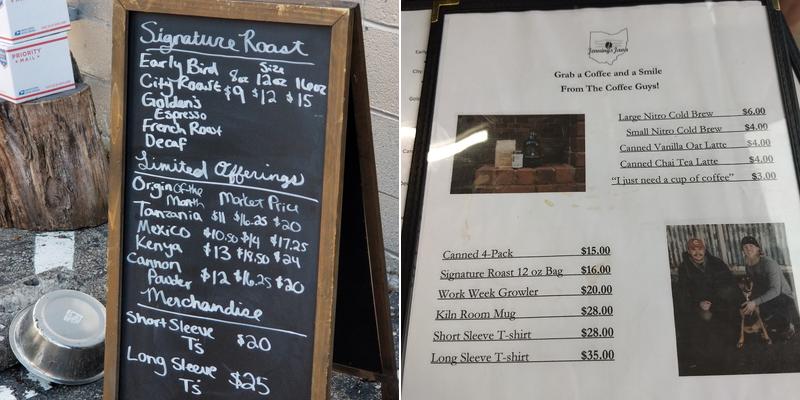 PRIORITY
MAIL
Signature Roast
Early Bird Size
City Roast 8oz 12oz 16oz
Golden's $9 $12 $15
Espresso
French Roast
Decaf
Limited Offerings
Origin of the
Month Market Price
Tanzania $11 $16.25 $20
Mexico $10.50 $14 $17.25
Kenya $13 $18.50 $24
Cannon
Powder $12 $16.25 $20
Merchandise
Short Sleeve
T's $20
Long Sleeve
T's $25
Jennings Java
Grab a Coffee and a Smile
From The Coffee Guys!
Large Nitro Cold Brew $6.00
Small Nitro Cold Brew $4.00
Canned Vanilla Oat Latte $4.00
Canned Chai Tea Latte $4.00
“I just need a cup of coffee” $3.00
Canned 4-Pack $15.00
Signature Roast 12 oz Bag $16.00
Work Week Growler $20.00
Kiln Room Mug $28.00
Short Sleeve T-shirt $28.00
Long Sleeve T-shirt $35.00